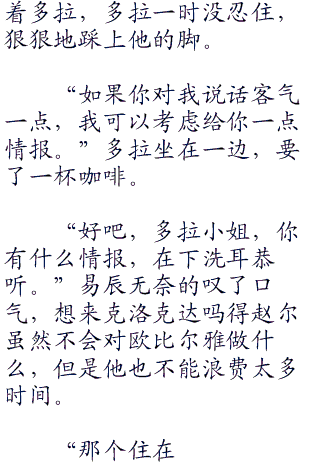 着多拉，多拉一时没忍住，
狠狠地踩上他的脚。
“如果你对我说话客气
一点，我可以考虑给你一点
情报。”多拉坐在一边，要
了一杯咖啡。
“好吧，多拉小姐，你
有什么情报，在下洗耳恭
听。”易辰无奈的叹了口
气，想来克洛克达吗得赵尔
虽然不会对欧比尔雅做什
么，但是他也不能浪费太多
时间。
“那个住在